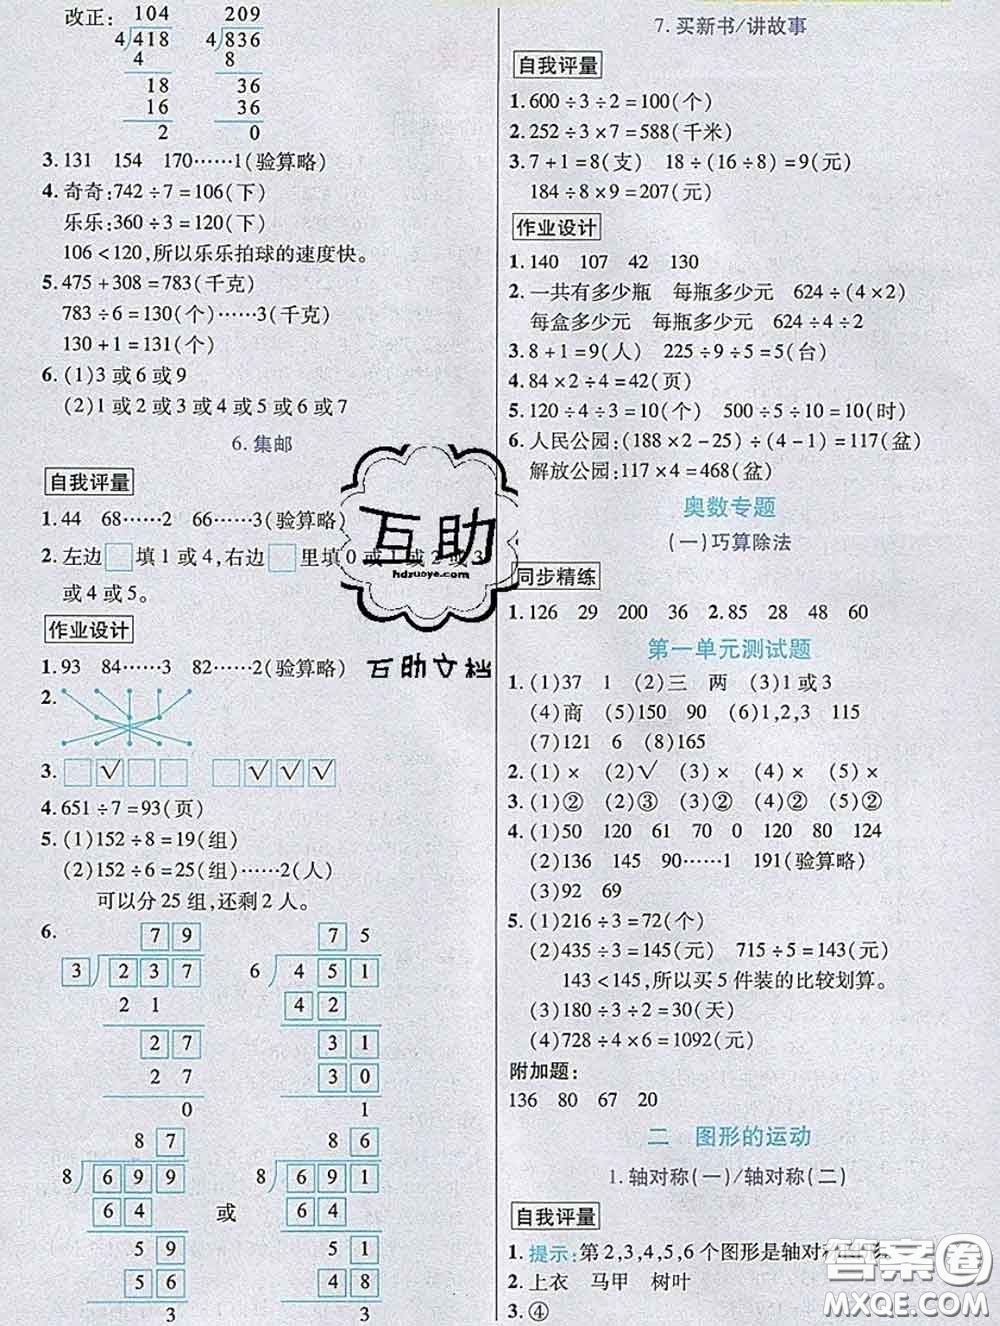 改正: 104 209
4)418 4)836
4 8
18 36
16 36
2 0
3. 131 154 170……1(验算略)
4. 奇奇:742÷7=106(下)
乐乐:360÷3=120(下)
106<120,所以乐乐拍球的速度快。
5. 475+308=783(千克)
783÷6=130(个)……3(千克)
130+1=131(个)
6. (1)3或6或9
(2)1或2或3或4或5或6或7
6. 集邮
自我评量
1. 44 68……2 66……3(验算略)
2. 左边□填1或4,右边□里填0或1或2或3
或4或5。
作业设计
1. 93 84……3 82……2(验算略)
2.
3. □☑□□ □☑☑☑
4. 651÷7=93(页)
5. (1)152÷8=19(组)
(2)152÷6=25(组)……2(人)
可以分25组,还剩2人。
6. 79 75
3)237 6)451
21 42
27 31
27 30
0 1
87 86
8)699 或 8)691
64 64
59 51
56 48
3 3
7. 买新书/讲故事
自我评量
1. 600÷3÷2=100(个)
2. 252÷3×7=588(千米)
3. 7+1=8(支) 18÷(16÷8)=9(元)
184÷8×9=207(元)
作业设计
1. 140 107 42 130
2. 一共有多少瓶 每瓶多少元 624÷(4×2)
每盒多少元 每瓶多少元 624÷4÷2
3. 8+1=9(人) 225÷9÷5=5(台)
4. 84×2÷4=42(页)
5. 120÷4÷3=10(个) 500÷5÷10=10(时)
6. 人民公园:(188×2-25)÷(4-1)=117(盆)
解放公园:117×4=468(盆)
奥数专题
(一)巧算除法
同步精练
1. 126 29 200 36 2. 85 28 48 60
第一单元测试题
1. (1)37 1 (2)三 两 (3)1或3
(4)商 (5)150 90 (6)1,2,3 115
(7)121 6 (8)165
2. (1)× (2)√ (3)× (4)× (5)×
3. (1)② (2)③ (3)② (4)② (5)②
4. (1)50 120 61 70 0 120 80 124
(2)136 145 90……1 191(验算略)
(3)92 69
5. (1)216÷3=72(个)
(2)435÷3=145(元) 715÷5=143(元)
143<145,所以买5件装的比较划算。
(3)180÷3÷2=30(天)
(4)728÷4×6=1092(元)
附加题:
136 80 67 20
二 图形的运动
1. 轴对称(一)/轴对称(二)
自我评量
1. 提示:第2,3,4,5,6个图形是轴对称图形。
2. 上衣 马甲 树叶
3. ④
互助
hdzuoye.com
互助文档
答案圈
MXQE.COM